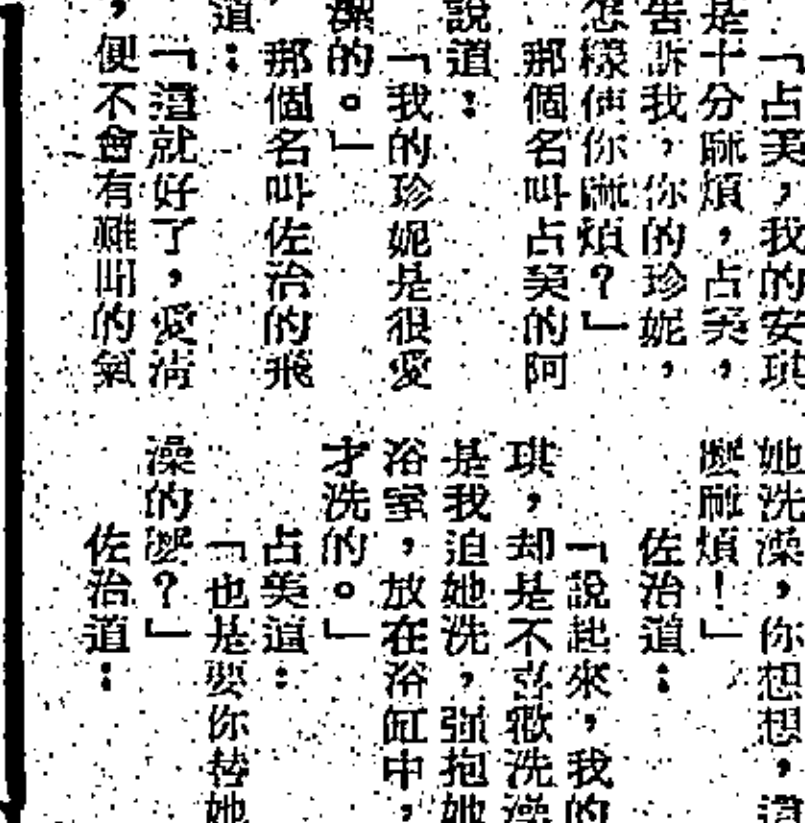 「占美，我的安琪
是十分麻煩，占美，
告訴我，你的珍妮，
怎樣使你麻煩？」
那個名叫占美的阿
說道：
「我的珍妮是很愛
潔的。」
那個名叫佐治的飛
道：
「這就好了，愛清
，便不會有難聞的氣
她洗澡，你想想，這
麼麻煩！」
佐治道：
「說起來，我的
琪，却是不喜歡洗澡
是我迫她洗，强抱她
浴室，放在浴缸中，
才洗的。」
占美道：
「也是要你替她
澡的麼？」
佐治道：